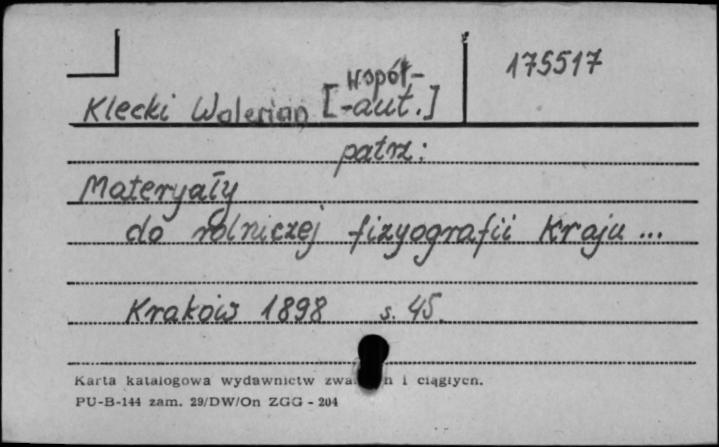 175517
Klecki Walerian [współ-
-aut.]
patrz:
Materyały
do rolniczej fizyografii Kraju ...
Kraków 1898 s. 45.
Karta katalogowa wydawnictw i ciągłych.
PU-B-144 zam. 29/DW/On ZGG - 204